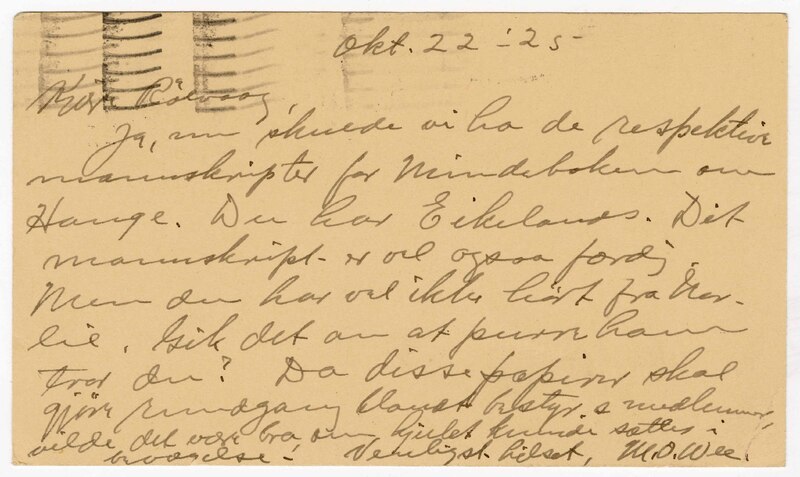 Okt. 22 - '25
Kjære Rölvaag,
Ja, nu skulde vi ha de respektive
manuskripter for Mindeboken om
Hauge. Du har Eikelands. Dit
manuskript er vel ogsaa færdig.
Men du har vel ikke hört fra Nor-
lie. Gik det an at purre ham
tror du? Da disse papirer skal
gjöre rundgang blandt bestyr.s medlemmer,
vilde det være bra om hjulet kunde sættes i
bevægelse! Venligst hilset, M.O. Wee.